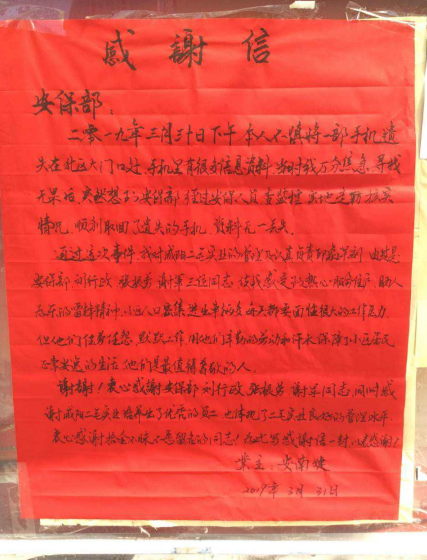 感謝信
安保部:
二零一九年三月三十日下午本人不慎将一部手机遗
失在北区大门口处,手机里有很多信息资料,当时我万分焦急,寻找
无果后,突然想到安保部,经过安保人员查监控,实地走访核实
情况,顺利取回了遗失的手机,资料无一丢失。
通过这次事件,我对咸阳二毛实业的认真负责
安保部刘行政、张 谢军三位同志,让我感受到热心服务 助人
为乐的雷锋精神,小区人口密集进出车辆多每天都要面临很大的工作压力,
但他们任劳任怨,默默工作,用他们辛勤的劳动和汗水保障了小区居民
正常安逸的生活,他们是最值得尊敬的人。
谢谢!衷心感谢安保部刘行政、张 谢军同志,同时感
谢咸阳二毛实业培养出了优秀的员工,也体现了二毛实业良好的管理水平
衷心感谢拾金不昧不愿留名的同志!为此写感谢信一封,以表感谢!
业主:安南
2019年3月31日